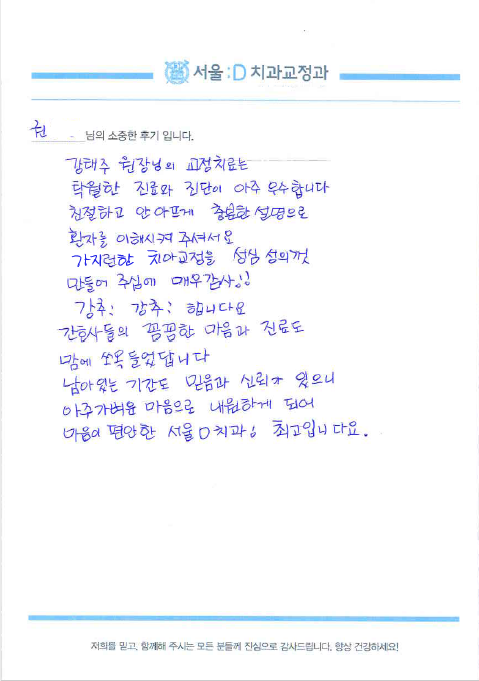 서울:D 치과교정과
권 - 님의 소중한 후기 입니다.
강태주 원장님의 교정치료는
탁월한 진료와 진단이 아주 우수합니다
친절하고 안아프게 충분한 설명으로
환자를 이해시켜 주셔서요
가지런한 치아교정을 성심 성의껏
만들어 주심에 매우감사!!
강추! 강추! 합니다요
간호사들의 꼼꼼한 마음과 진료도
맘에 쏘옥 들었답니다
남아있는 기간도 믿음과 신뢰가 있으니
아주가벼운 마음으로 내원하게 되어
마음이 편안한 서울 D치과! 최고입니다요.
저희를 믿고, 함께해 주시는 모든 분들께 진심으로 감사드립니다. 항상 건강하세요!